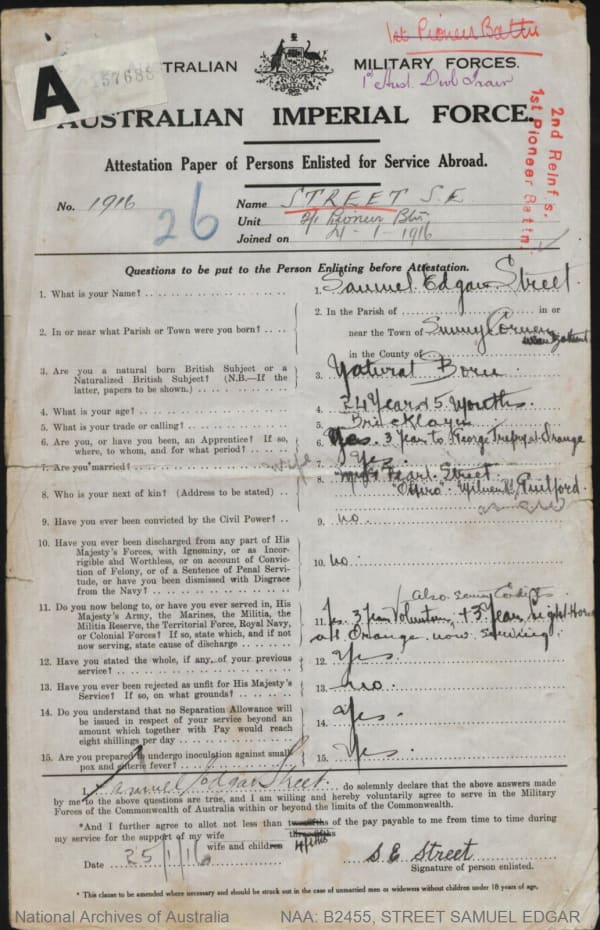 1st Pioneer Battn
A
57688
AUSTRALIAN MILITARY FORCES.
1st Aust. Divl Train
AUSTRALIAN IMPERIAL FORCE.
2nd Reinf's.
1st Pioneer Battn.
Attestation Paper of Persons Enlisted for Service Abroad.
No. 1916
26
Name STREET S.E
Unit Pioneer Btn
Joined on 21-1-1916
Questions to be put to the Person Enlisting before Attestation.
1. What is your Name?
1. Samuel Edgar Street
2. In or near what Parish or Town were you born?
2. In the Parish of in or
near the Town of Sunny Corner
in the County of
3. Are you a natural born British Subject or a
Naturalized British Subject? (N.B.—If the
latter, papers to be shown.)
3. Natural Born
4. What is your age?
4. 24 Years 5 Months
5. What is your trade or calling?
5. Bricklayer
6. Are you, or have you been, an Apprentice? If so,
where, to whom, and for what period?
6. Yes. 3 Years to George Orange
7. Are you married?
7. Yes
8. Who is your next of kin? (Address to be stated)
wife
8. Pearl Street
Guilford
9. Have you ever been convicted by the Civil Power?
9. no.
10. Have you ever been discharged from any part of His
Majesty's Forces, with Ignominy, or as Incor-
rigible and Worthless, or on account of Convic-
tion of Felony, or of a Sentence of Penal Servi-
tude, or have you been Dismissed with Disgrace
from the Navy?
10. no.
11. Do you now belong to, or have you ever served in, His
Majesty's Army, the Marines, the Militia, the
Militia Reserve, the Territorial Force, Royal Navy,
or Colonial Forces? If so, state which, and if not
now serving, state cause of discharge
Also Senior Cadets
11. Yes. 3 Years Volunteers, + 3 Years Light Horse
at Orange. now serving.
12. Have you stated the whole, if any, of your previous
service?
12. Yes.
13. Have you ever been rejected as unfit for His Majesty's
Service? If so, on what grounds?
13. no.
14. Do you understand that no Separation Allowance will
be issued in respect of your service beyond an
amount which together with Pay would reach
eight shillings per day
14. Yes.
15. Are you prepared to undergo inoculation against small-
pox and enteric fever?
15. Yes.
I, Samuel Edgar Street do solemnly declare that the above answers made
by me to the above questions are true, and I am willing and hereby voluntarily agree to serve in the Military
Forces of the Commonwealth of Australia within or beyond the limits of the Commonwealth.
*And I further agree to allot not less than of the pay payable to me from time to time during
my service for the support of my wife
wife and children
Date 25/1/16
S E Street
Signature of person enlisted.
* This clause to be amended where necessary and should be struck out in the case of unmarried men or widowers without children under 18 years of age.
National Archives of Australia
NAA: B2455, STREET SAMUEL EDGAR